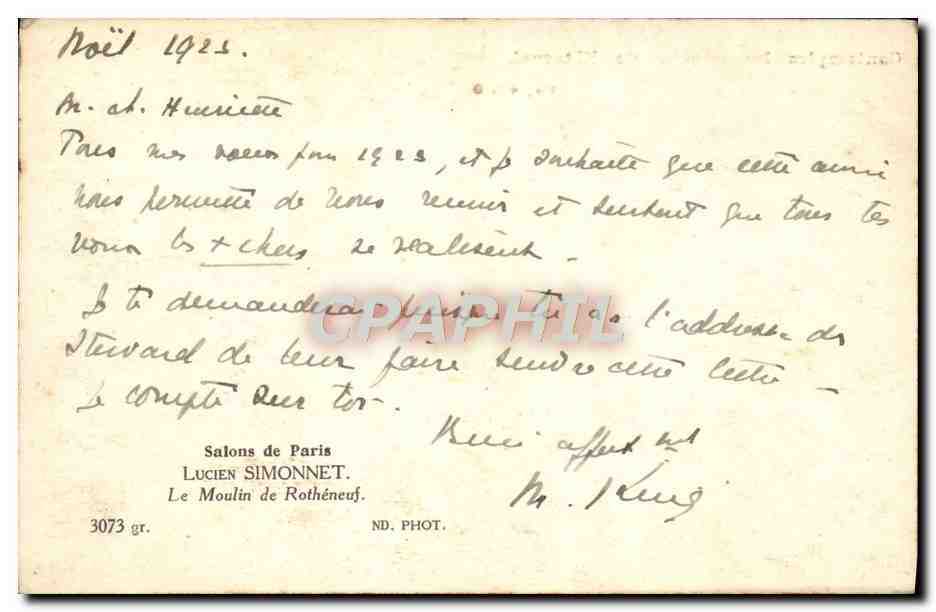 Noël 1923.
M. ch. Henriette
Tous mes voeux pour 1923, et je souhaite que cette année
nous permette de nous réunir et surtout que tous tes
voeux les + chers se réalisent -
Je te demanderai puisque tu as l'address des
Steward de leur faire cette lettre -
Je compte sur toi.
Bien affect mt
M. King
CPAPHIL
Salons de Paris
LUCIEN SIMONNET.
Le Moulin de Rothéneuf.
3073 gr.
ND. PHOT.